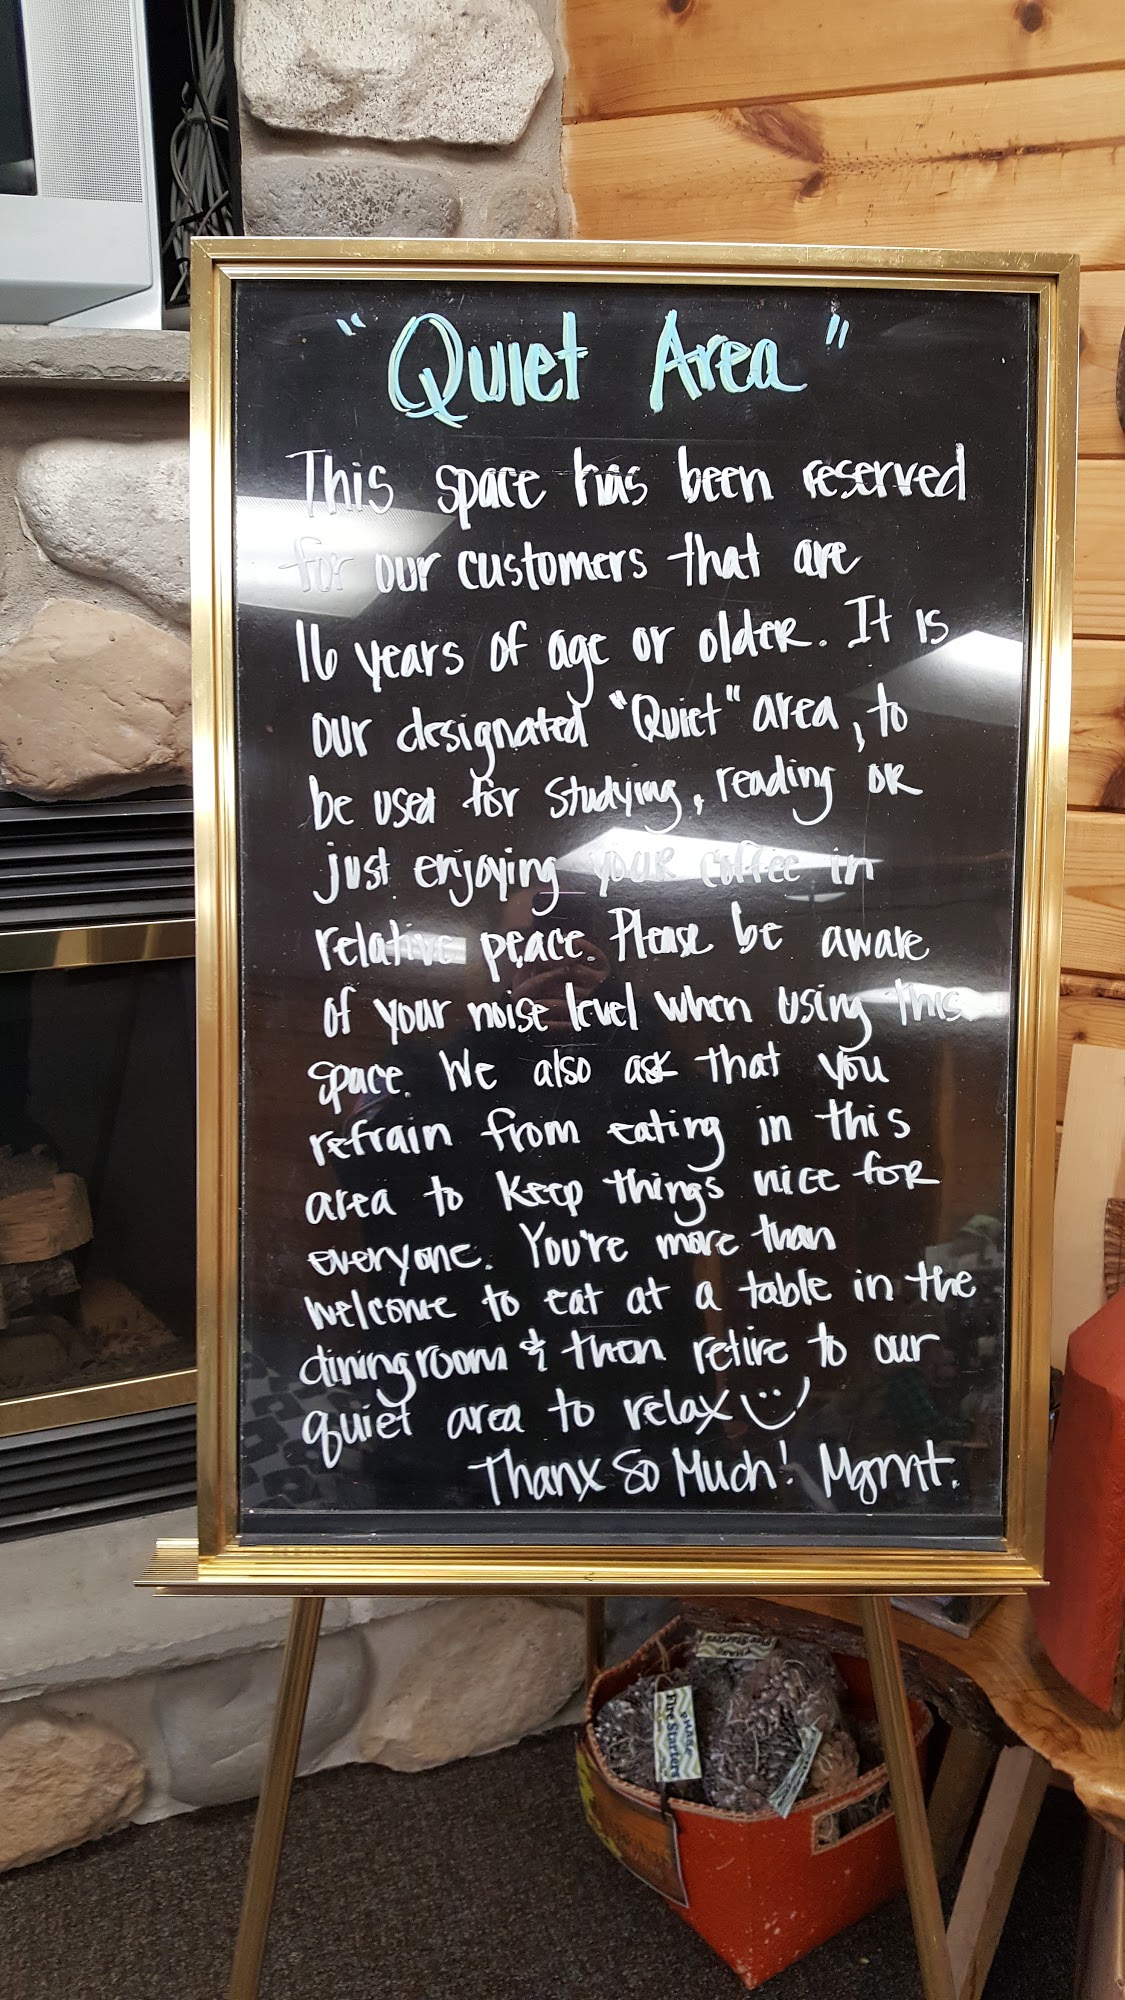 "Quiet Area"
This space has been reserved
for our customers that are
16 years of age or older. It is
our designated "Quiet" area, to
be used for studying, reading or
just enjoying your coffee in
relative peace. Please be aware
of your noise level when using this
space. We also ask that you
refrain from eating in this
area to keep things nice for
everyone. You're more than
welcome to eat at a table in the
diningroom & then retire to our
quiet area to relax
Thanx So Much! Mgmt.
Fire Starters
Fire Starters